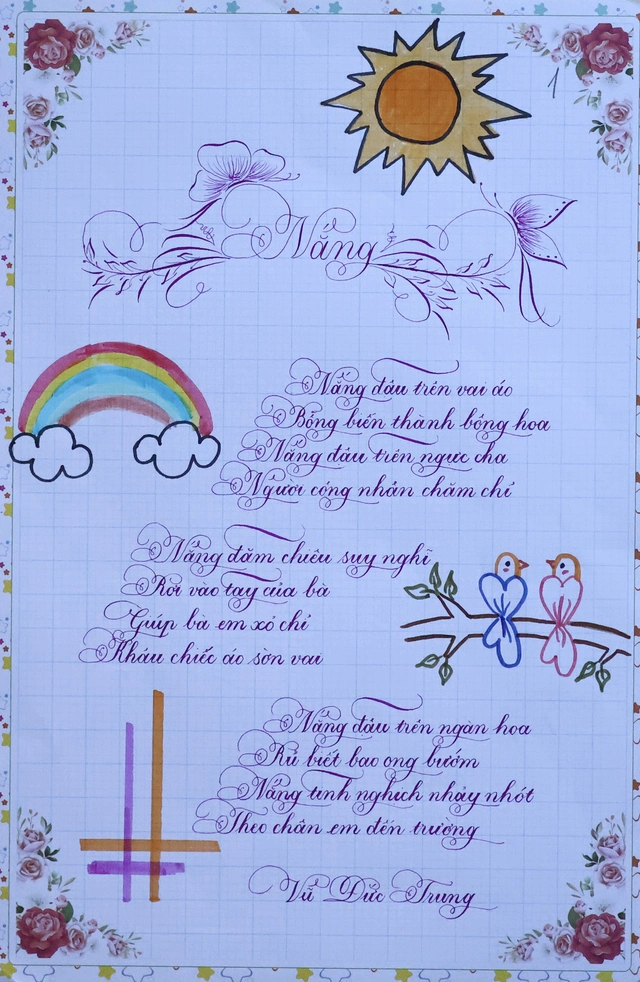 1
Nắng
Nắng đậu trên vai áo
Bỗng biến thành bông hoa
Nắng đậu trên ngực cha
Người công nhân chăm chỉ
Nắng đăm chiêu suy nghĩ
Rơi vào tay của bà
Giúp bà em xỏ chỉ
Khâu chiếc áo sờn vai
Nắng đậu trên ngàn hoa
Rủ biết bao ong bướm
Nắng tinh nghịch nhảy nhót
Theo chân em đến trường
Vũ Đức Trung